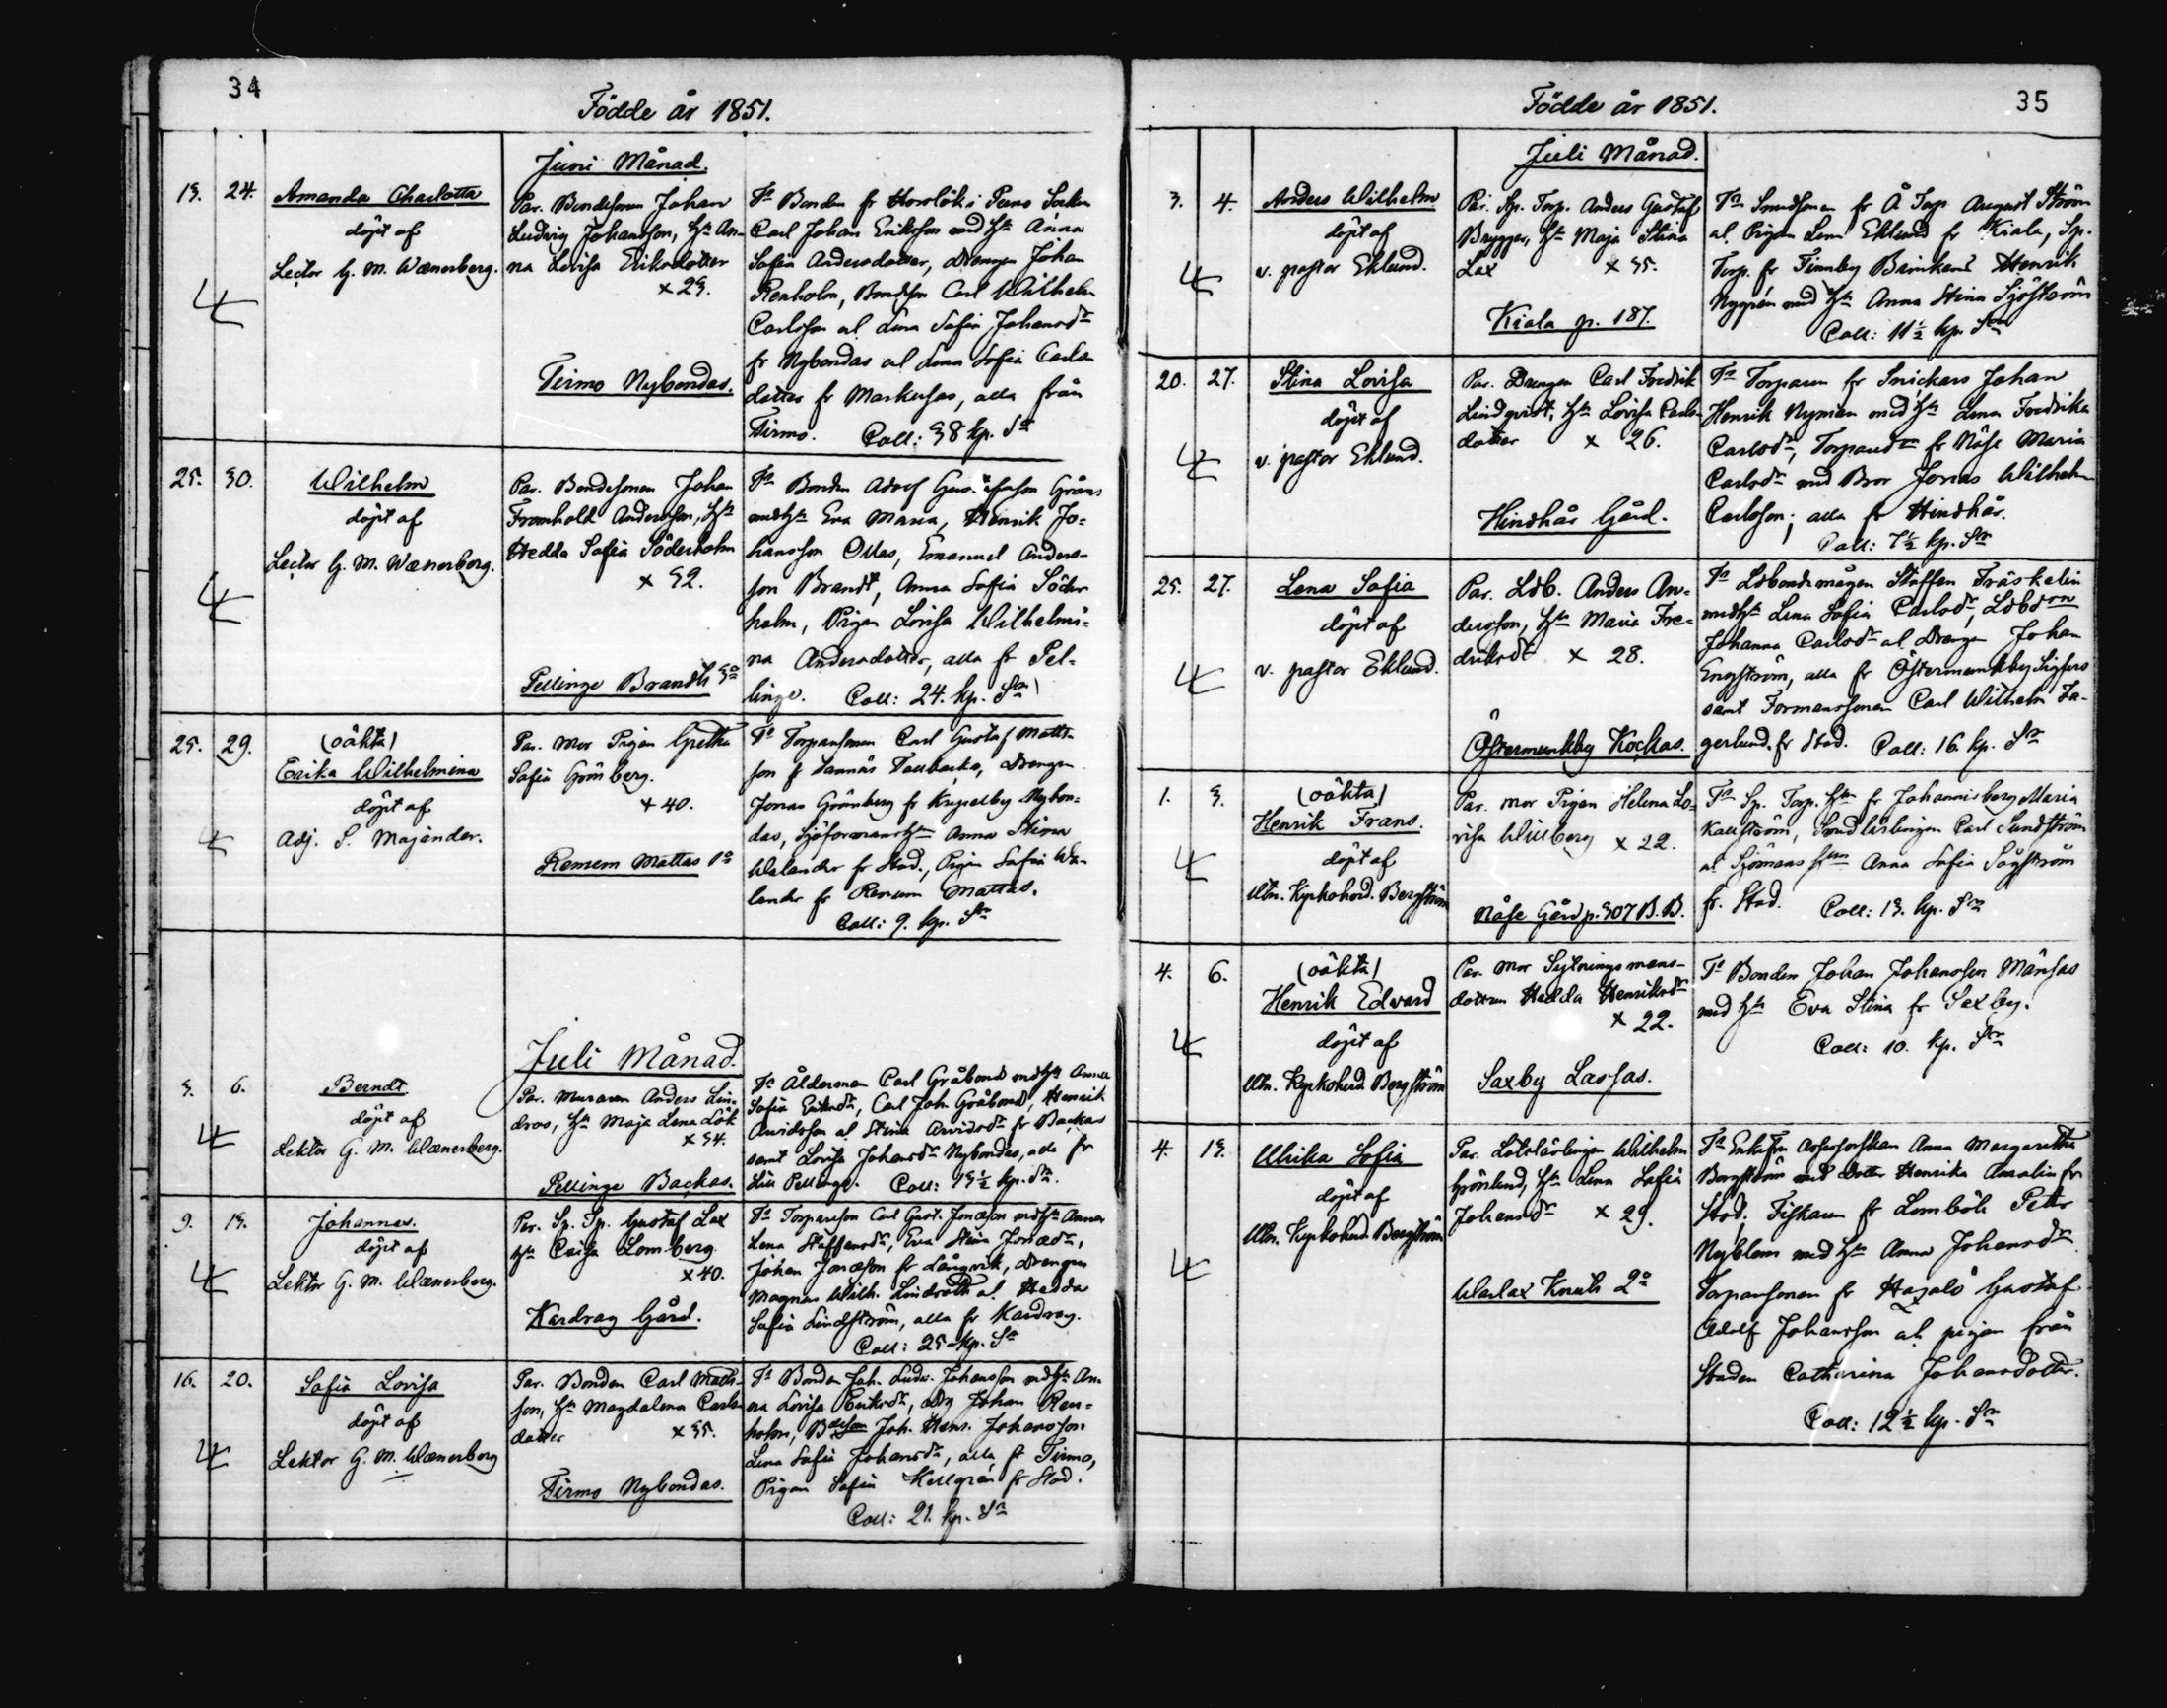 34
Födde år 1851.
Juni Månad.
13. 24. Amanda Charlotta
döpt af
Lector G. M. Wænerberg.
Par. Bondesonen Johan
Ludvig Johansson, H:u An-
na Lovisa Eriksdotter
x 23.
Tirmo Nybondas.
F:r Bonden fr Horslök i Perno Socken
Carl Johan Eriksson med H:u Anna
Sofia Andersdotter, Drengen Johan
Renholm, Bondeson Carl Wilhelm
Carlsson al Lena Sofia Johansd:r
fr Nybondas al Lena Sofia Carls-
dotter fr Markusas, alla från
Tirmo. Coll: 38 kp. S:r
25. 30. Wilhelm
döpt af
Lector G. M. Wænerberg.
Par. Bondesonen Johan
Fromhold Andersson, H:u
Hedda Sofia Söderholm
x 32.
Pellinge Brandts 3:o
F:r Bonden Adolf Gustafsson Gråns
med H:u Eva Maria, Henrik Jo-
hansson Ollas, Emanuel Anders-
son Brandt, Anna Sofia Söder
holm, Pigan Lovisa Wilhelmi-
na Andersdotter, alla fr Pel-
linge. Coll: 24. kp. S:r
25. 29. (oäkta)
Erika Wilhelmina
döpt af
Adj. S. Majander.
Par. mor Pigan Gretha
Sofia Grönberg.
x 40.
Remem Mattas 1:o
F:r Torparesonen Carl Gustaf Matts-
son f Tannäs Tallbacka, Drengen
Jonas Grönberg fr Kripelby Nybon-
das, Sjöformansh:u Anna Stina
Walander fr Stad., Pigan Sofia Wa-
lander fr Remem Mattas.
Coll: 9. kp. S:r
Juli Månad.
3. 6. Berndt
döpt af
Lektor G. M. Wænerberg.
Par. Muraren Anders Lin-
droos, H:u Maja Lena Lök
x 34.
Pellinge Backas.
F:r Ålderman Carl Gråbond med H:u Anna
Sofia Eriksd:r, Carl Joh. Gråbond, Henrik
Arvidsson al Stina Arvidsd:r fr Backas
samt Lovisa Johansd:r Nybondas, alla fr
Lill Pellinge. Coll: 13½ kp. S:r.
9. 13. Johannes.
döpt af
Lektor G. M. Wænerberg.
Par. Sp. Tp. Gustaf Lax
H:u Caisa Lomberg.
x 40.
Kardrag Gård.
F:r Torpareson Carl Gust. Jonasson med H:u Anna
Lena Staffansd:r, Eva Stina Jonasd:r,
Johan Jonasson fr Långvik, Drengen
Magnus Wilh. Lindroth al Hedda
Sofia Lindström, alla fr Kardrag.
Coll: 25 kp. S:r
16. 20. Sofia Lovisa
döpt af
Lektor G. M. Wænerberg
Par. Bonden Carl Matts-
son, H:u Magdalena Carls-
dotter x 35.
Tirmo Nybondas.
F:r Bonden Joh. Ludv. Johansson med H:u An-
na Lovisa Eriksd:r, Johan Ren-
holm, Bdeson Joh. Henr. Johansson
Lena Sofia Johansd:r, alla fr Tirmo,
Pigan Sofia Kellgrén fr Stad.
Coll: 21. kp. S:r
35
Födde år 1851.
Juli Månad.
3. 4. Anders Wilhelm
döpt af
v. pastor Eklund.
Par. Sp. Torp. Anders Gustaf
Brygger, H:u Maja Stina
Lax x 35.
Kiala p. 187.
F:r Smedsonen fr Å Torp August Ström
al. Pigan Lena Eklund fr Kiala, Sp.
Torp. fr Finnby Brinkens Henrik
Nygrén med H:u Anna Stina Sjöström
Coll: 11½ kp. S:r
20. 27. Stina Lovisa
döpt af
v. pastor Eklund.
Par. Drengen Carl Fredrik
Lindqvist, H:u Lovisa Carls-
dotter x 26.
Hindhår Gård.
F:r Torparen fr Snickars Johan
Henrik Nyman med H:u Lena Fredrika
Carlsd:r, Torpared:r fr Näse Maria
Carlsd:r med Bror Jonas Wilhelm
Carlsson; alla fr Hindhår.
Coll: 7½ kp. S:r
25. 27. Lena Sofia
döpt af
v. pastor Eklund.
Par. Ldb. Anders An-
dersson, H:u Maria Fre-
driksd:r x 28.
Östermunkby Kockas.
F:r Ldbondemågen Staffan Träskelin
med H:u Lena Sofia Carlsd:r, Ldbd:ren
Johanna Carlsd:r al Dreng. Johan
Engström, alla fr Östermunkby Sigfers
samt Formanssonen Carl Wilhelm Fa-
gerlund fr Stad. Coll: 16. kp. S:r
1. 3. (oäkta)
Henrik Frans.
döpt af
Utn. Kyrkoherd. Bergström
Par. mor Pigan Helena Lo-
visa Willberg x 22.
Näse Gård p. 307 B. B.
F:r Sp. Torp. H:un fr Johannisberg Maria
Kallström, Smedlärlingen Carl Sundström
al Sjömans H:un Anna Sofia Sågström
fr. Stad. Coll: 13. kp. S:r
4. 6. (oäkta)
Henrik Edvard
döpt af
Utn. Kyrkoherd. Bergström
Par. mor Sytningsmans-
dottren Hedda Henriksd:r
x 22.
Saxby Lassas.
F:r Bonden Johan Johansson Månsas
med H:u Eva Stina fr Saxby.
Coll: 10. kp. S:r
4. 13. Ulrika Sofia
döpt af
Utn. Kyrkoherd. Bergström
Par. Lotslärlingen Wilhelm
Grönlund, H:u Lena Sofia
Johansd:r x 29.
Warlax Knuts 2:o
F:r Enkefru Assessorskan Anna Margaretha
Bergström med Dotter Henrika Amalia fr
Stad, Fiskaren fr Lomböle Petter
Nyblom med H:u Anna Johansd:r
Torparsonen fr Haxalö Gustaf
Adolf Johansson al. pigan från
Staden Catharina Johansdotter.
Coll: 12½ kp. S:r